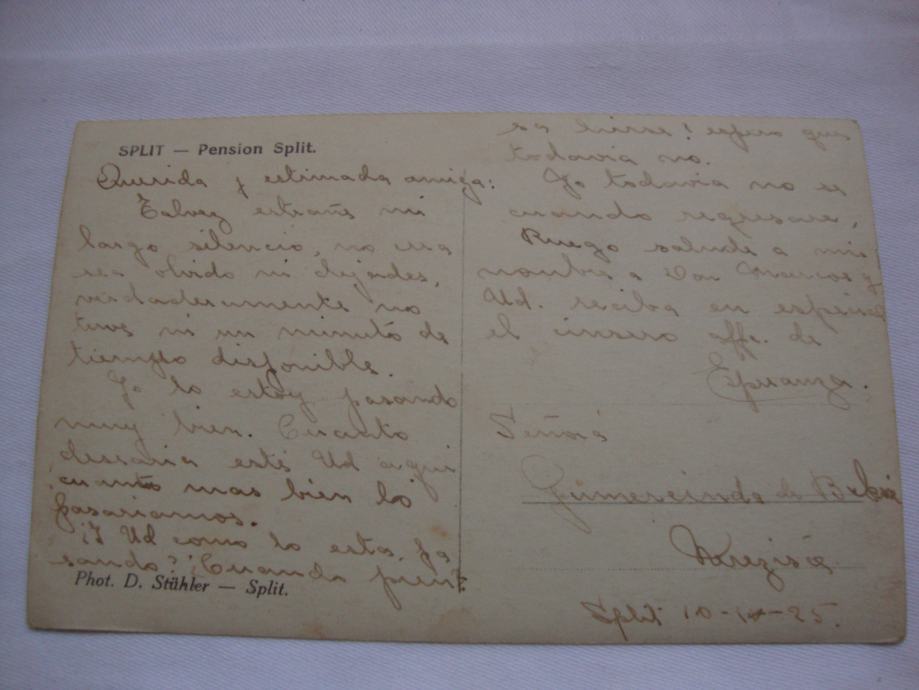 SPLIT — Pension Split.
Querida y estimada amiga:
Talvez estrañe mi
largo silencio, no crea
sea olvido ni dejades,
verdaderamente no
tuve ni un minuto de
tiempo disponible.
Yo lo estoy pasando
muy bien. Cuanto
desearia esté Ud aqui
cuanto mas bien lo
pasariamos.
¡Y Ud como lo esta pa
sando? ¡Cuando pien
Phot. D. Stühler — Split.
sa irse! espero que
todavia no.
Yo todavia no se
cuando regresare,
Ruego salude a mi
nombre a Don Marcos y
Ud. reciba en especial
el sincero affc. de
Esperanza.
Señora
Gumercinda de
Split 10-25.